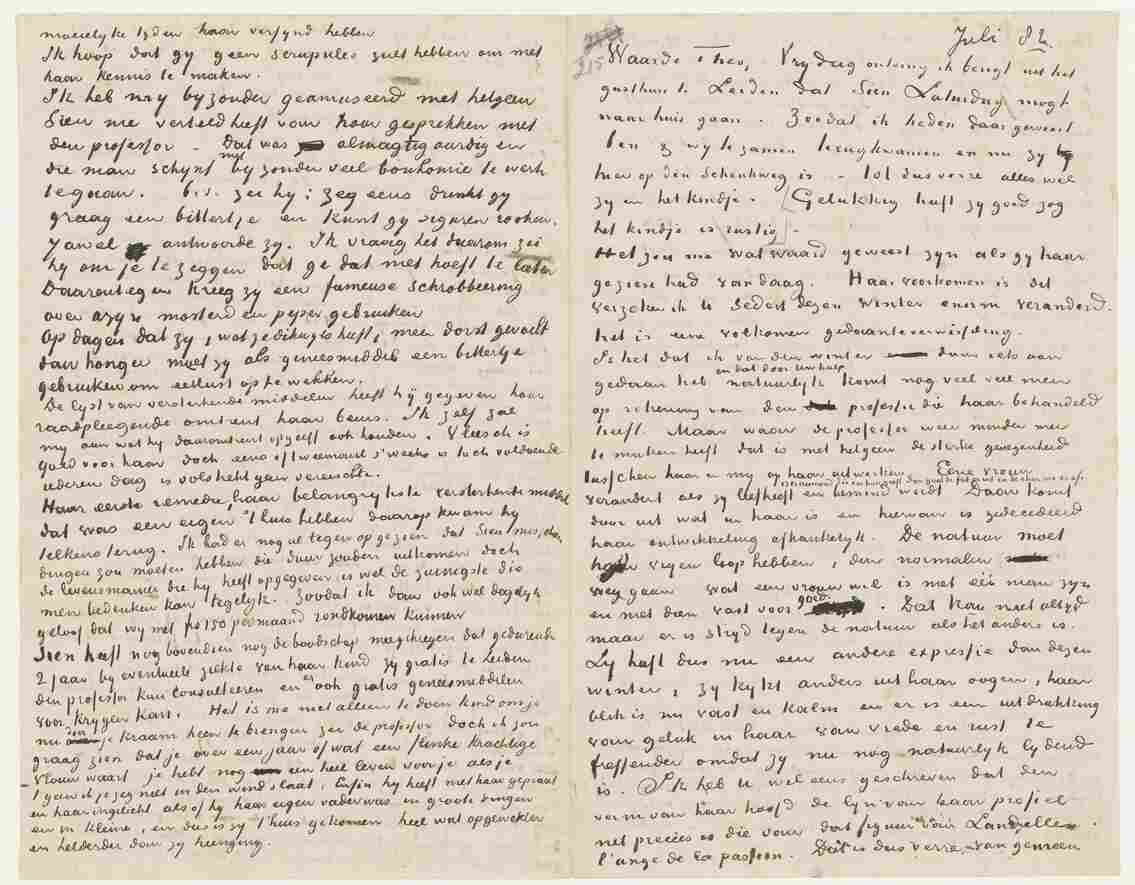 moeielyke tyden haar versynd hebben
Ik hoop dat gy geen scrupules zult hebben om met
haar kennis te maken.
Ik heb my byzonder geamuseerd met hetgeen
Sien me verteld heeft van haar gesprekken met
den professor – Dat was almagtig aardig en
die man schynt met byzonder veel bonhomie te werk
te gaan. b.v. zei hy : zeg eens drinkt gy
graag een bittertje en kunt gy sigaren rooken.
Jawel antwoorde zy. Ik vraag het daarom zei
hy om je te zeggen dat ge dat niet hoeft te laten
Daarentegen kreeg zy een fameuse schrobbeering
over azyn mosterd en peper gebruiken
Op dagen dat zy, wat ze dikwijls heeft, meer dorst gevoelt
dan honger moet zy als geneesmiddel een bittertje
gebruiken om eetlust op te wekken.
De lyst van versterkende middelen heeft hij gegeven haar
raadplegende omtrent haar beurs. Ik zelf zal
my aan wat hy daaromtrent opgeeft ook houden. Vleesch is
goed voor haar doch eens of tweemaal s'weeks is toch voldoende
iederen dag is volstrekt geen vereischte.
Haar eerste remedie, haar belangrykste versterkend middel
dat was een eigen t'huis hebben daarop kwam hy
telkens terug. Ik had er nog al tegen op gezien dat Sien misschien
dingen zou moeten hebben die duur zouden uitkomen doch
de levensmanier die hy heeft opgegeven is wel de zuinigste die
men bedenken kan tegelyk. Zoodat ik dan ook wel dagelyk
geloof dat wy met frs 150 per maand rondkomen kunnen
Sien heeft nog bovendien nog de boodschap meegekregen dat gedurende
2 jaar by eventueele ziekte van haar kind zy gratis te Leiden
den professor kan consulteeren en er ook gratis geneesmiddelen
voor krygen kan. Het is me niet alleen te doen kind om je
nu door je kraam heen te brengen zei de professor doch ik zou
graag zien dat je over een jaar of wat een flinke krachtige
vrouw waart je hebt nog een heel leven voor je als je
't geen ik je zeg niet in den wind slaat. Enfin hy heeft met haar gepraat
en haar ingelicht als of hy haar eigen vader was in groote dingen
en in kleine, en dus is zy t'huis gekomen heel wat opgewekter
en helderder dan zy heenging.
Juli 82.
215
Waarde Theo, Vrydag ontving ik berigt uit het
gasthuis te Leiden dat Sien Saturdag mogt
naar huis gaan. Zoodat ik heden daar geweest
ben & wy te zamen terugkwamen en nu zy
hier op den Schenkweg is – tot dus verre alles wel
zy en het kindje. Gelukkig heeft zy goed zog
het kindje is rustig.
Het zou me wat waard geweest zyn als gy haar
gezien had vandaag. Haar voorkomen is dit
verzeker ik te sedert dezen winter enorm veranderd.
het is eene volkomen gedaanteverwisseling.
Is het dat ik van den winter daar iets aan
en dat door uw hulp
gedaan heb natuurlyk komt nog veel veel meer
op rekening van den professor die haar behandeld
heeft. Maar waar de professor weer minder mee
te maken heeft dat is met hetgeen de sterke genegenheid
tusschen haar & my op haar uitwerkten. Eene vrouw
verandert als zy liefheeft en bemind wordt Daar komt
daar uit wat in haar is en hiervan is gedecideerd
haar ontwikkeling afhankelyk. De natuur moet
haar vrijen loop hebben, den normalen
weg gaan wat een vrouw wil is met één man zyn
en met dien vast voor goed. Dat kan niet altyd
maar er is stryd tegen de natuur als het anders is.
Zy heeft dus nu een andere expressie dan dezen
winter, zy kykt anders uit haar oogen, haar
blik is nu vast en kalm en er is een uitdrukking
van geluk in haar van vrede en rust te
treffender omdat zy nu nog natuurlyk lydend
is. Ik heb u wel eens geschreven dat den
vorm van haar hoofd de lyn van haar profiel
net precies is die van dat figuur van Landelle
l'ange de la passion. Dat is dus verre van gemeen